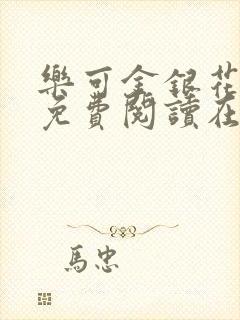 樂可金銀花
免費閱讀在
馬忠